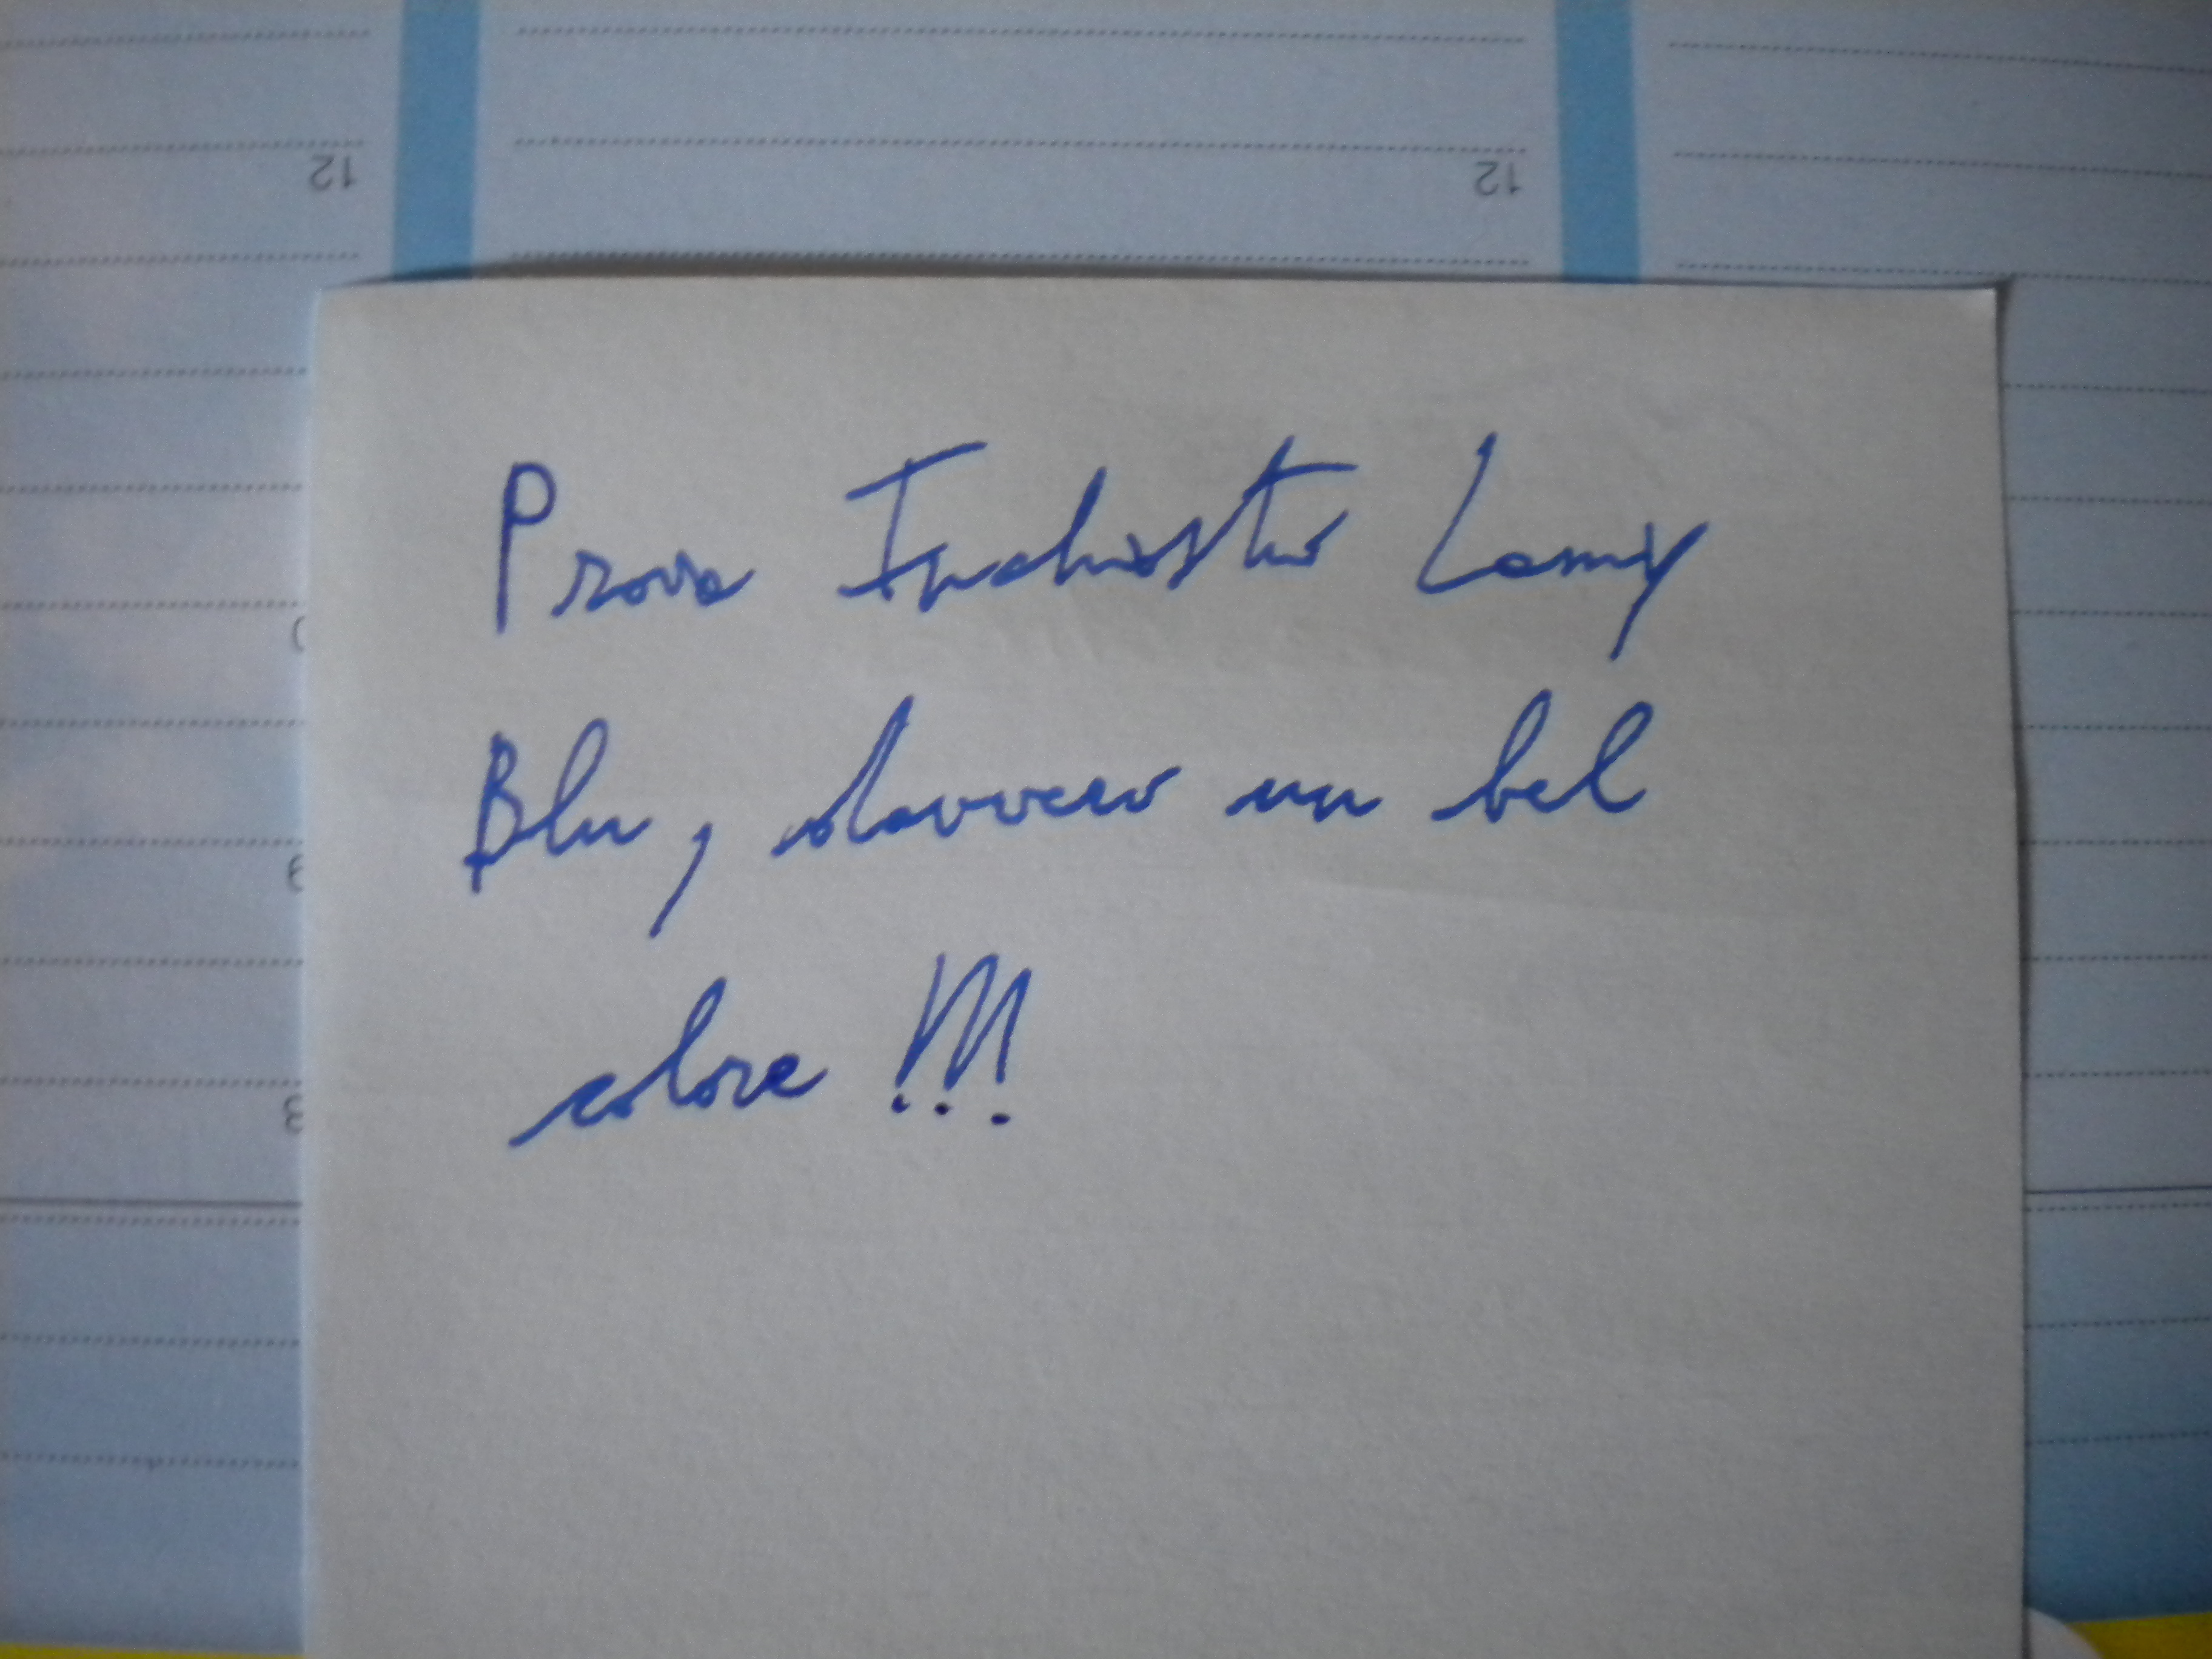 12
12
Prova Inchiostro Lamy
Blu, davvero un bel
colore !!!
9
3